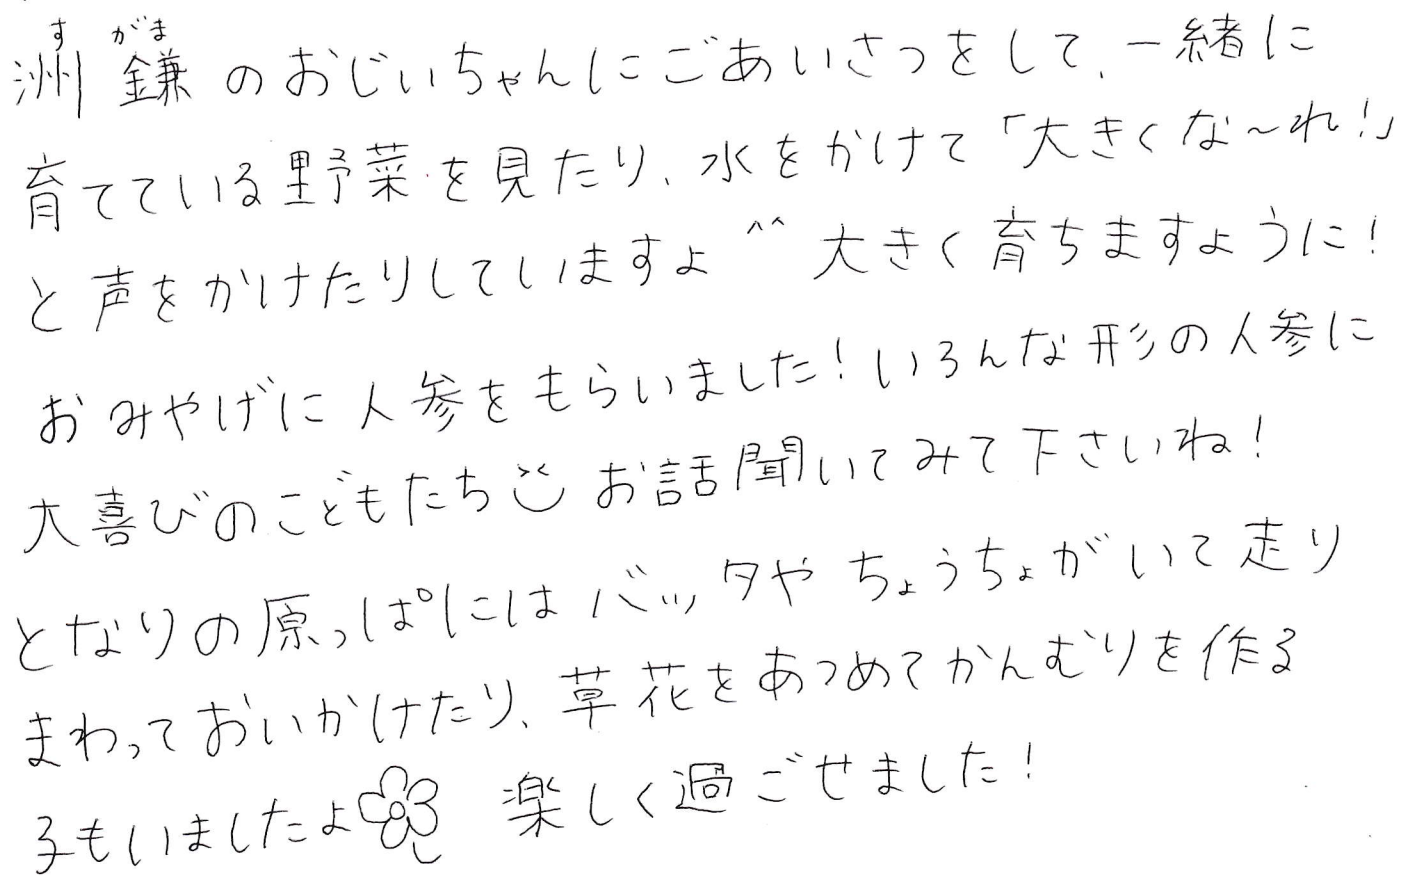 すがま
洲鎌のおじいちゃんにごあいさつをして、一緒に
育てている野菜を見たり、水をかけて「大きくな〜れ!」
と声をかけたりしていますよ^^ 大きく育ちますように!
おみやげに人参をもらいました!いろんな形の人参に
大喜びのこどもたち お話聞いてみて下さいね!
となりの原っぱにはバッタやちょうちょがいて走り
まわっておいかけたり、草花をあつめてかんむりを作る
子もいましたよ 楽しく過ごせました!